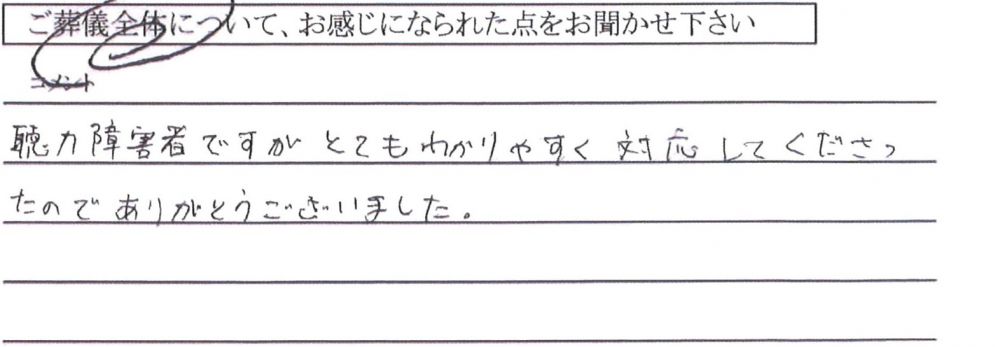 ご葬儀全体について、お感じになられた点をお聞かせ下さい
コメント
聴力障害者ですがとてもわかりやすく対応してくださっ
たのでありがとうございました。